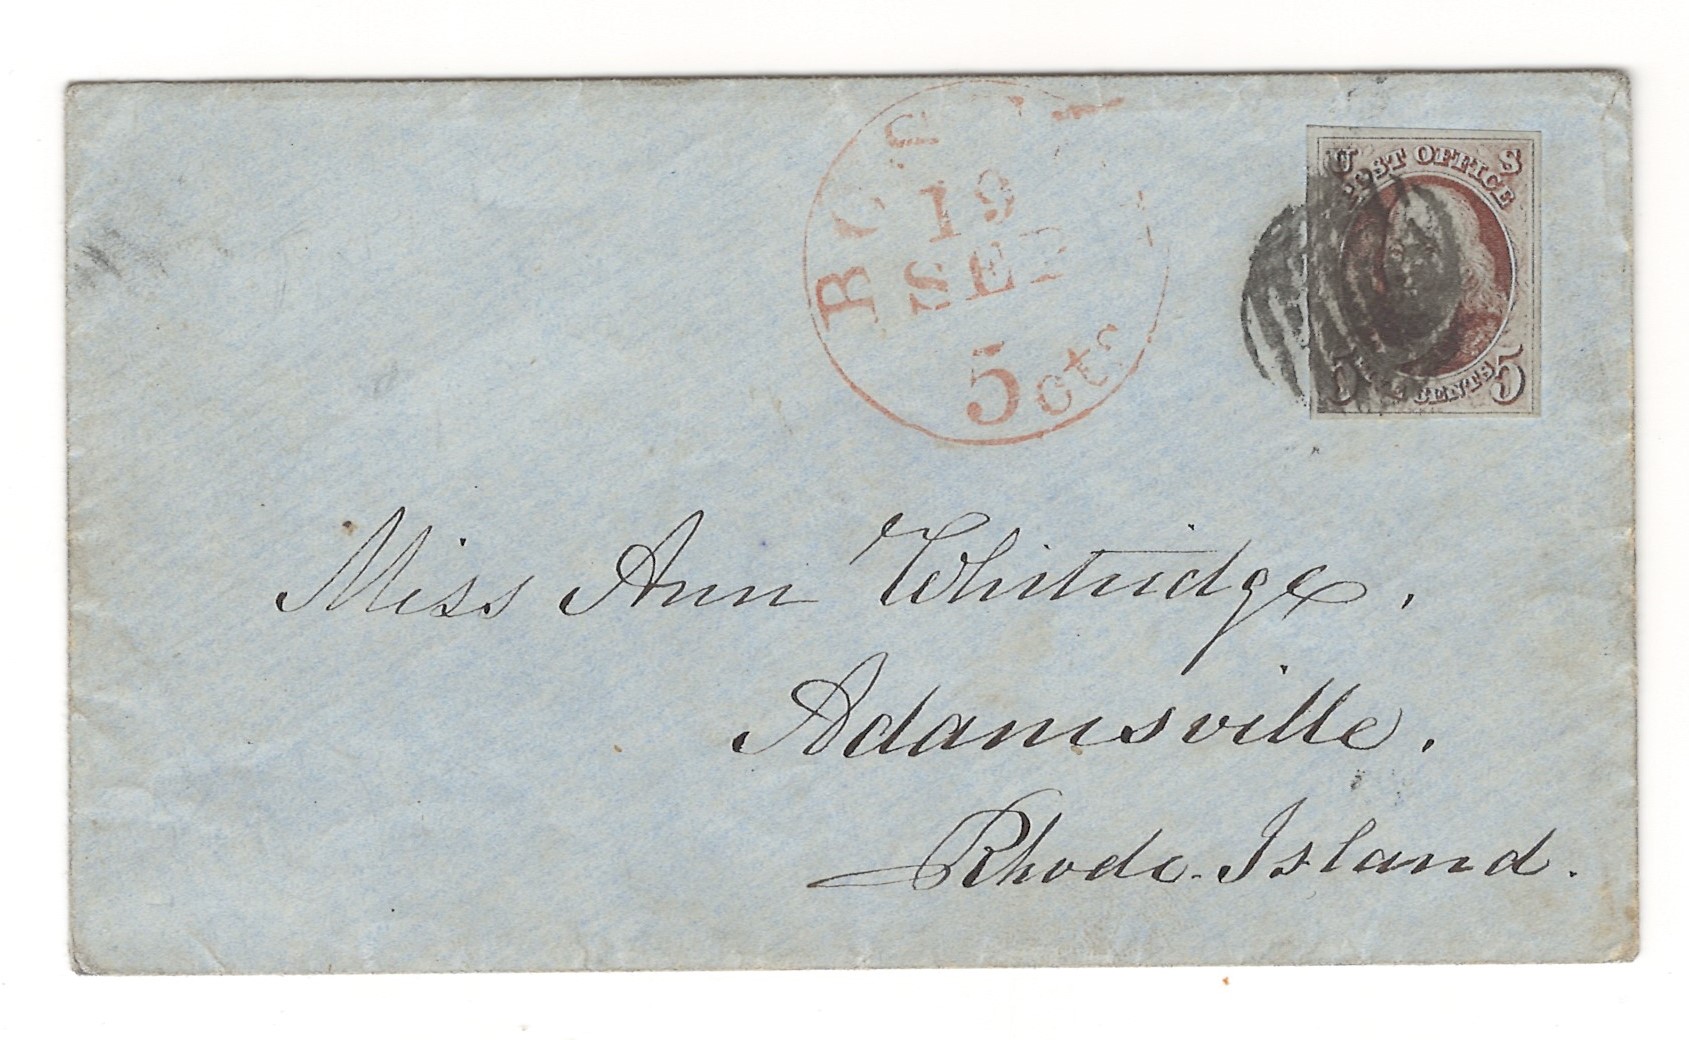 BOST
19
SEP
5 cts
U S
POST OFFICE
FIVE CENTS
5 5
Miss Ann Whitridge,
Adamsville.
Rhode Island.